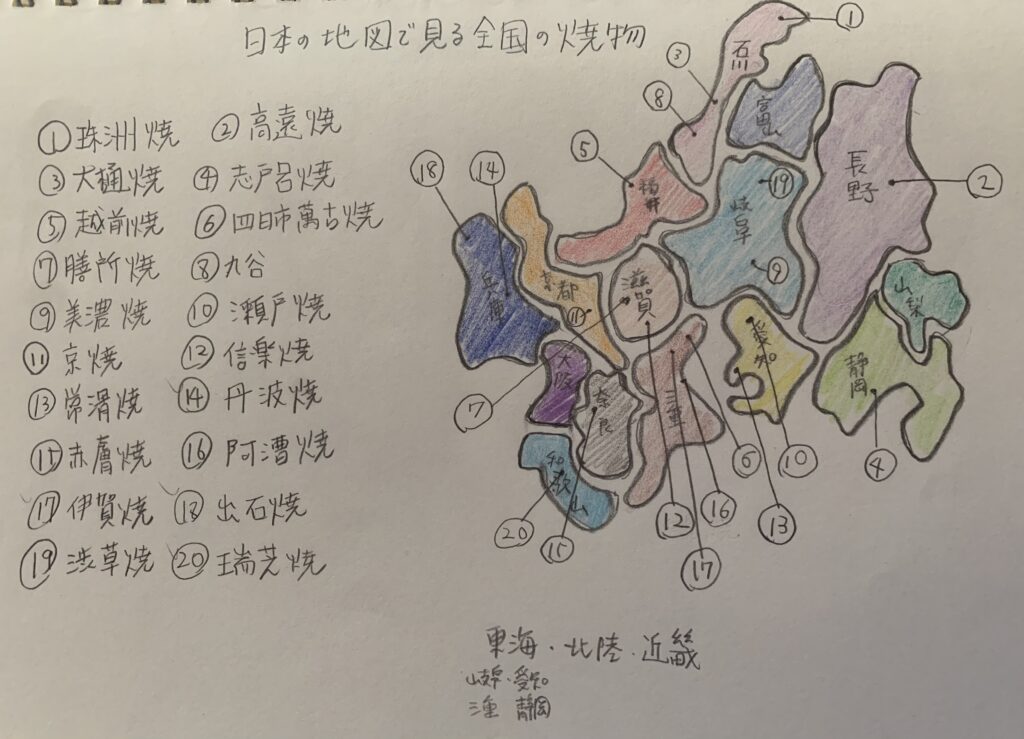 日本の地図で見る全国の焼物
①珠洲焼 ②高遠焼
③大樋焼 ④志戸呂焼
⑤越前焼 ⑥四日市萬古焼
⑦膳所焼 ⑧九谷
⑨美濃焼 ⑩瀬戸焼
⑪京焼 ⑫信楽焼
⑬常滑焼 ⑭丹波焼
⑮赤膚焼 ⑯阿漕焼
⑰伊賀焼 ⑱出石焼
⑲渋草焼 ⑳瑞芝焼
①
石川
③
⑧
富山
長野
②
⑤
福井
岐阜
⑲
⑨
⑱
⑭
兵庫
京都
⑪
滋賀
山梨
静岡
④
愛知
大阪
奈良
三重
⑦
和歌山
⑳
⑮
⑫
⑯
⑰
⑥
⑬
⑩
東海・北陸・近畿
岐阜・愛知
三重 静岡